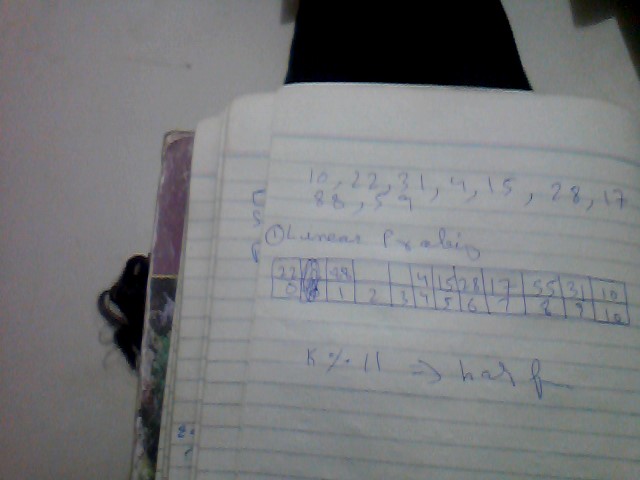 10, 22, 31, 4, 15, 28, 17
88, 59
① Linear Probing
22 88 4 15 28 17 55 31 10
0 1 2 3 4 5 6 7 8 9 10
K % 11 ⇒